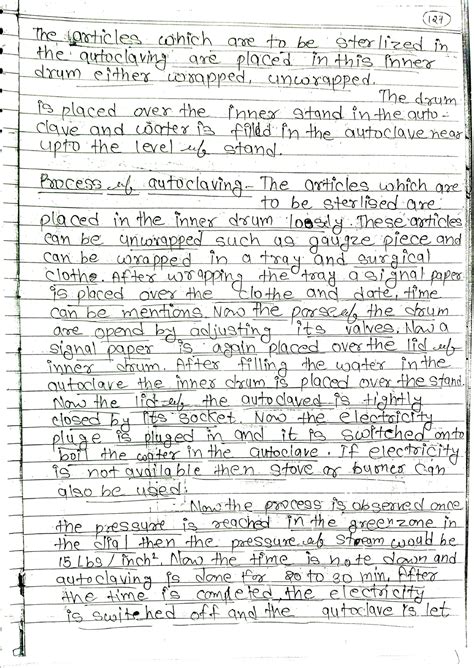 127
The articles which are to be sterlized in
the autoclaving are placed in this inner
drum either wrapped, unwrapped.
The drum
is placed over the inner stand in the auto-
clave and water is filld in the autoclave near
upto the level of stand.
Process of autoclaving - The articles which are
to be sterilised are
placed in the inner drum loosly. These articles
can be unwrapped such as gaugze piece and
can be wrapped in a tray and surgical
clothe. After wrapping the tray a signal paper
is placed over the clothe and date, time
can be mentions. Now the porse of the drum
are opend by adjusting its valves. Now a
signal paper is again placed over the lid of
inner drum. After filling the water in the
autoclave the inner drum is placed over the stand.
Now the lid of the autoclaved is tightly
closed by its socket. Now the electricity
pluge is pluged in and it is switched onto
boil the water in the autoclave. If electricity
is not available then stove or burner can
also be used.
Now the process is observed once
the pressure is reached in the greenzone in
the dial then the pressure of steam would be
15 Lbs / inch². Now the time is note down and
autoclaving is done for 20 to 30 min. After
the time is completed the electricity
is switched off and the autoclave is let